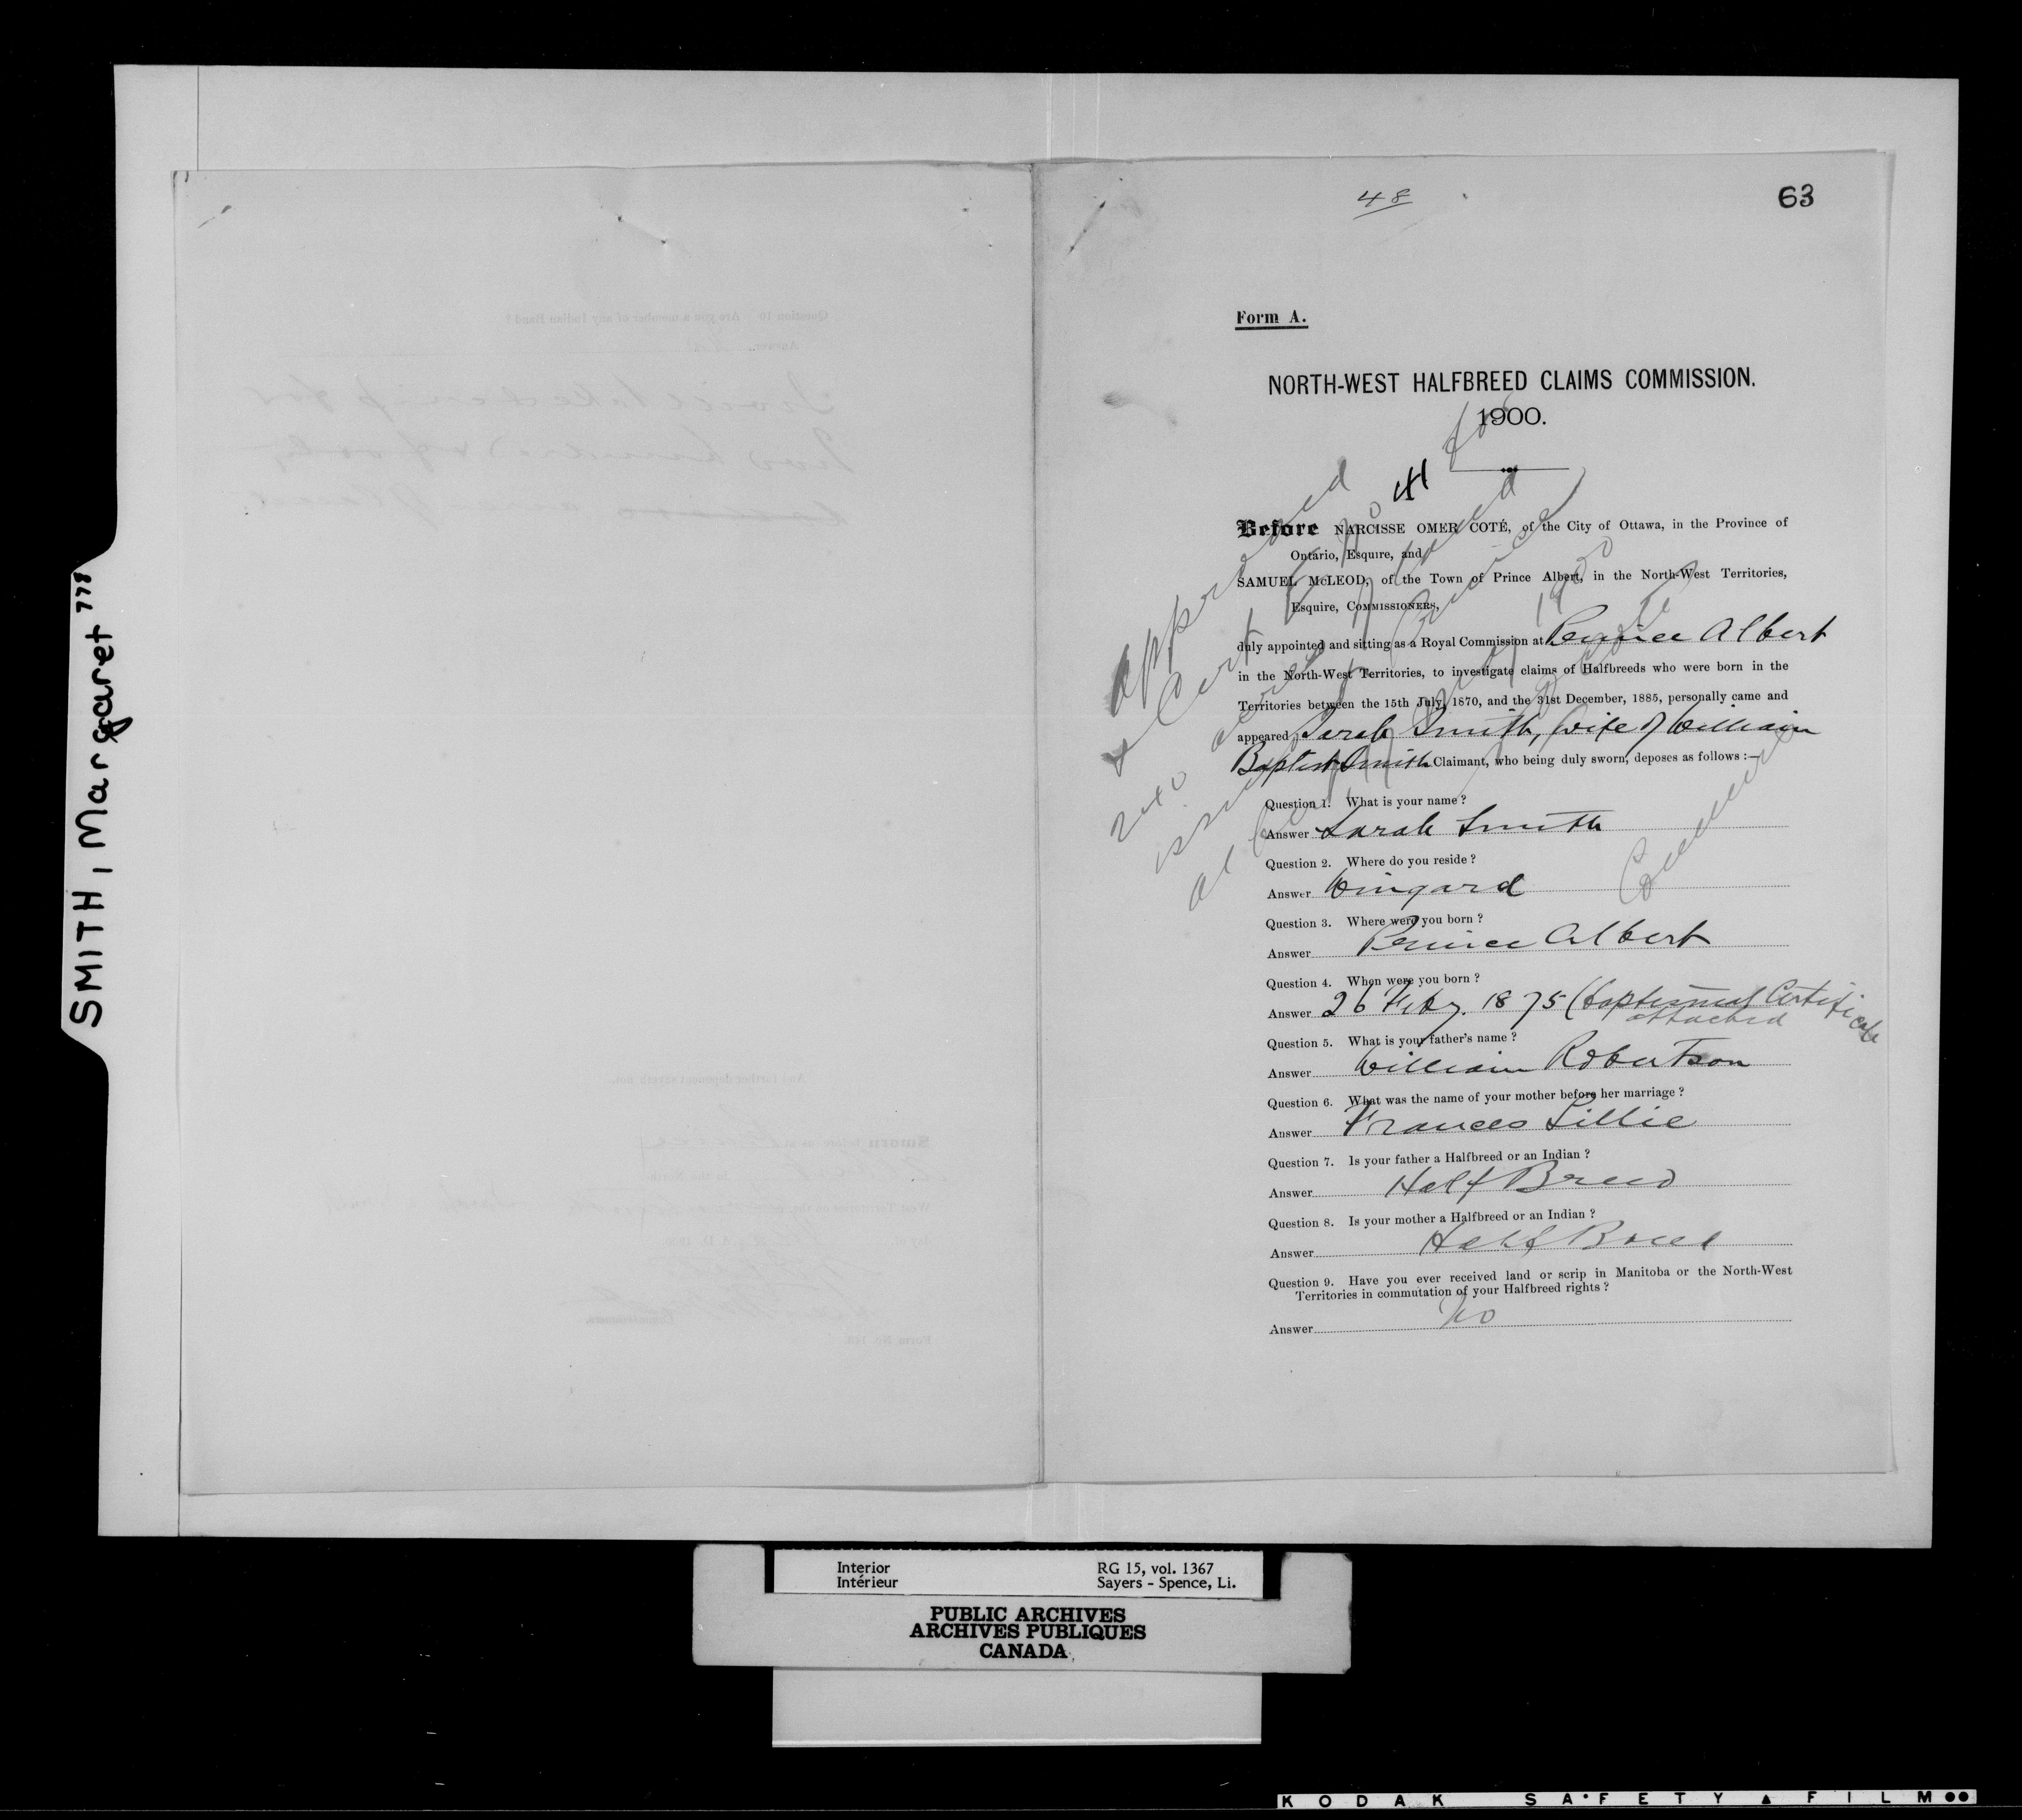 SMITH, Margaret 778
48
63
Form A.
NORTH-WEST HALFBREED CLAIMS COMMISSION.
1900.
Approved
Cert
No 41 for
240
issued
at
1900
Before NARCISSE OMER COTÉ, of the City of Ottawa, in the Province of
Ontario, Esquire, and
SAMUEL McLEOD, of the Town of Prince Albert, in the North-West Territories,
Esquire, COMMISSIONERS,
duly appointed and sitting as a Royal Commission at Prince Albert
in the North-West Territories, to investigate claims of Halfbreeds who were born in the
Territories between the 15th July, 1870, and the 31st December, 1885, personally came and
appeared Sarah Smith, wife of William
Baptist Smith Claimant, who being duly sworn, deposes as follows :—
Question 1. What is your name ?
Answer Sarah Smith
Question 2. Where do you reside ?
Answer Wingard
Question 3. Where were you born ?
Answer Prince Albert
Question 4. When were you born ?
Answer 26 Feby. 1875 (baptismal Certificate
attached
Question 5. What is your father's name ?
Answer William Robertson
Question 6. What was the name of your mother before her marriage ?
Answer Frances Lillie
Question 7. Is your father a Halfbreed or an Indian ?
Answer Half Breed
Question 8. Is your mother a Halfbreed or an Indian ?
Answer Half Breed
Question 9. Have you ever received land or scrip in Manitoba or the North-West
Territories in commutation of your Halfbreed rights ?
Answer No
Interior
Intérieur
RG 15, vol. 1367
Sayers - Spence, Li.
PUBLIC ARCHIVES
ARCHIVES PUBLIQUES
CANADA
KODAK SAFETY FILM